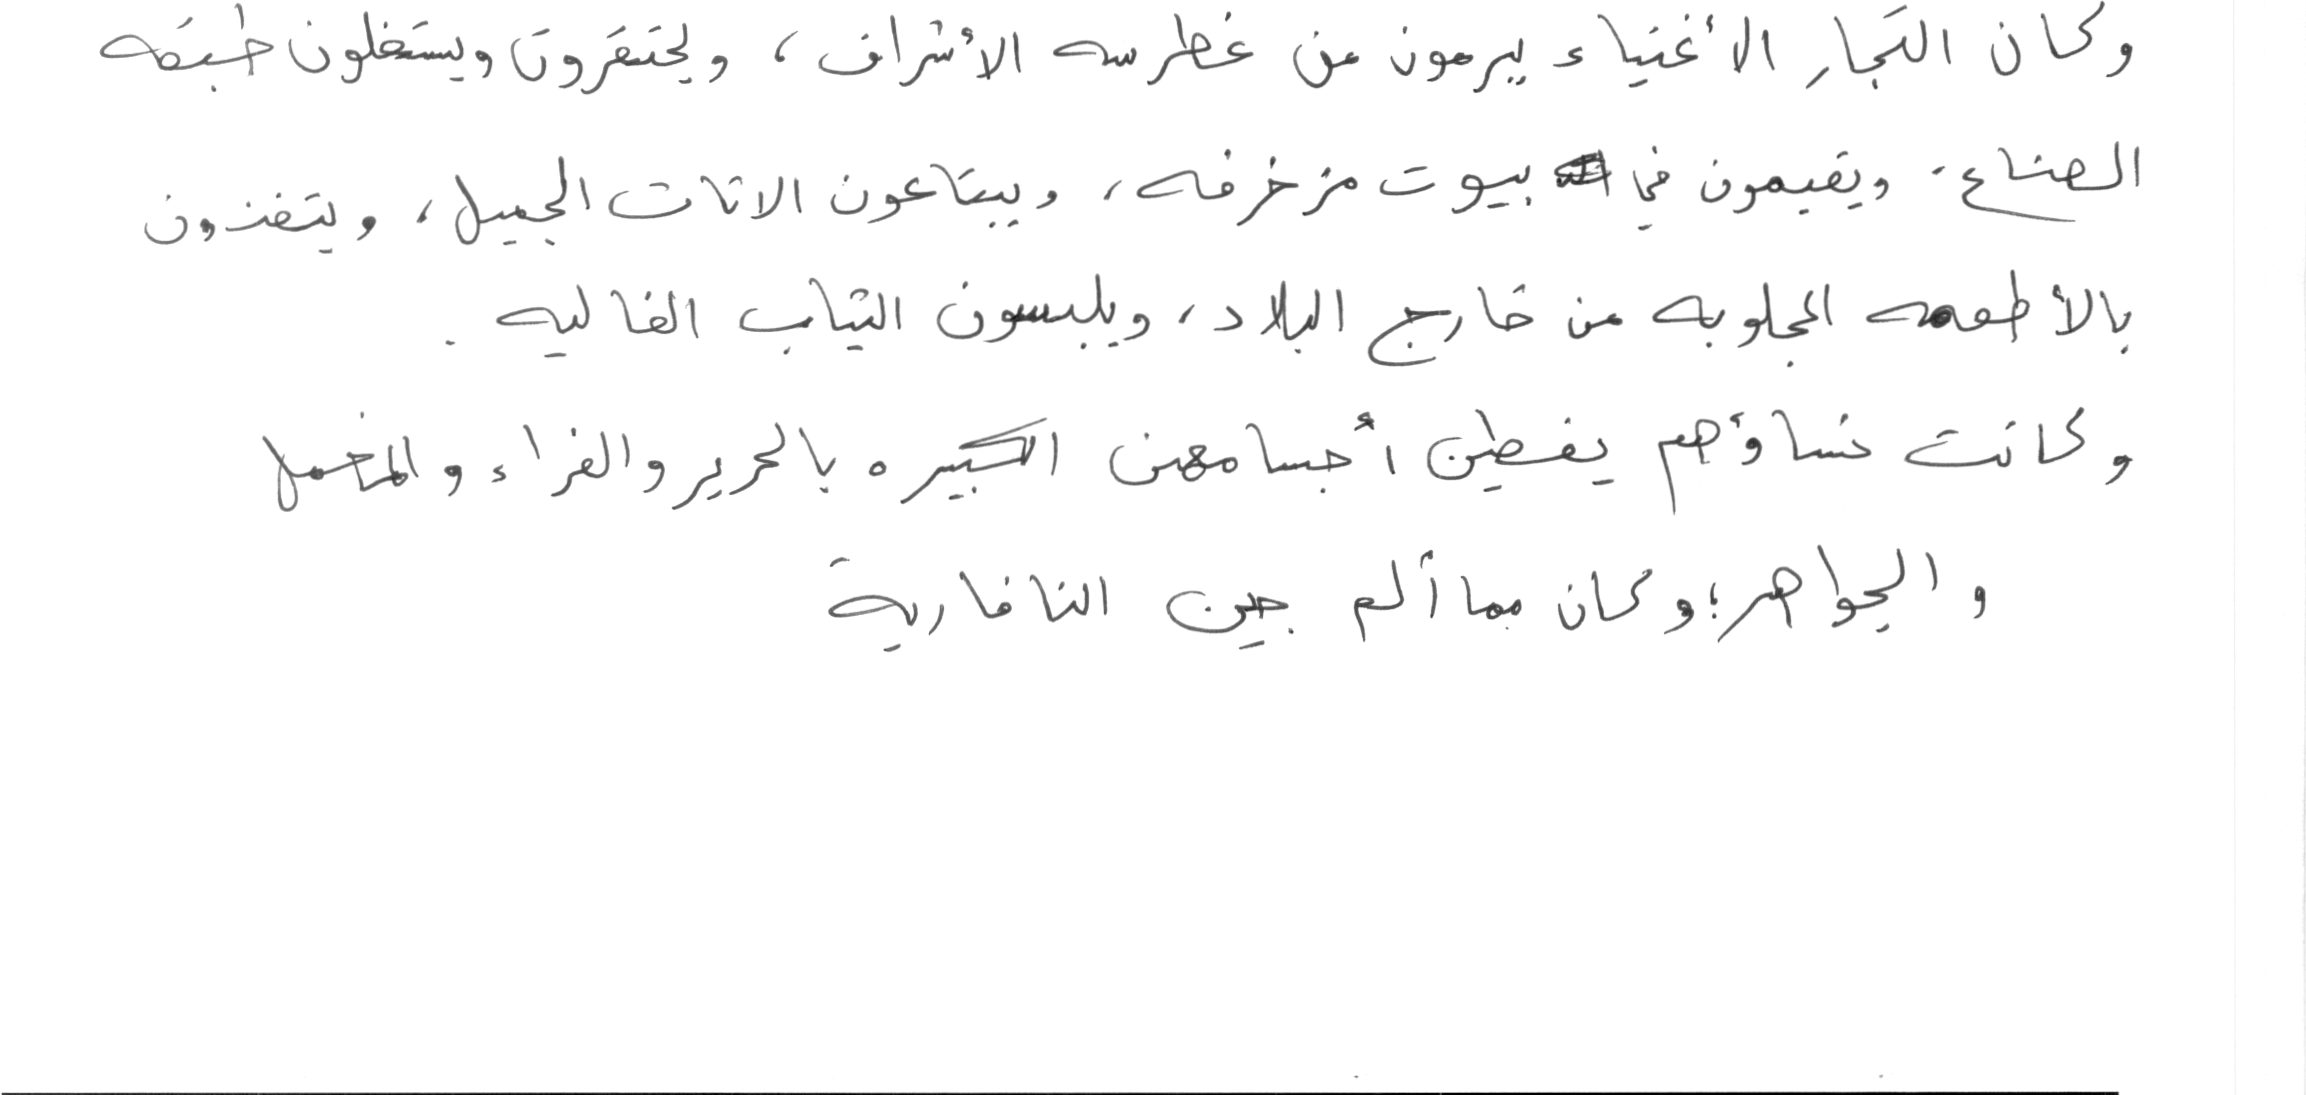 وكان التجار الأغنياء يبرمون من غطرسه الأشراف، ويحتقرون ويستغلون طبقه
الصناع. ويقيمون في بيوت مزخرفه، ويبتاعون الاثاث الجميل، ويتغذون
بالأطعمه المجلوبه من خارج البلاد، ويلبسون الثياب الغاليه.
وكانت نساؤهم يغطين أجسامهن الكبيره بالحرير والفراء والمخمل
والجواهر؛ وكان مما ألم جين النافارية